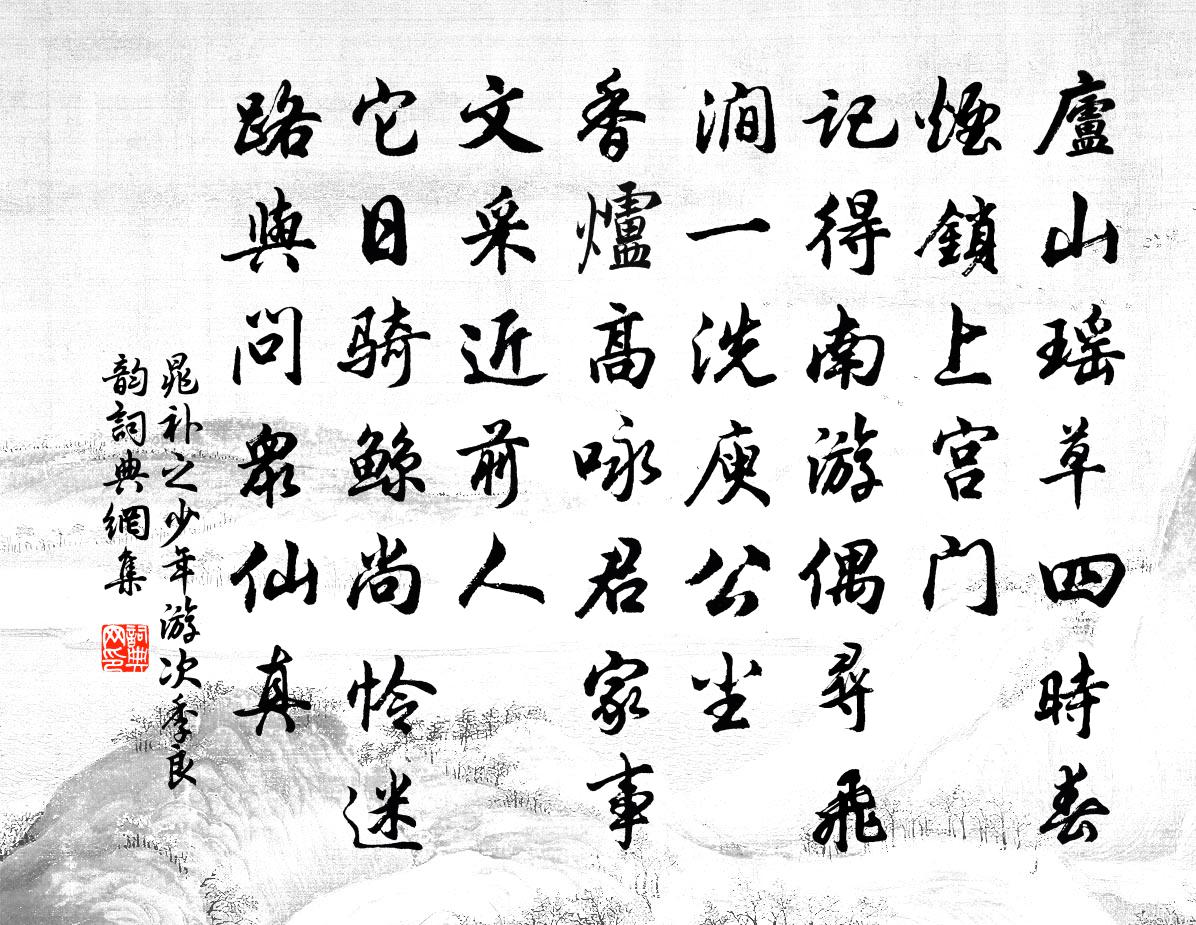 廬山瑶草四時春
煙鎖上宫门
记得南游偶尋飛
澗一洗庾公尘
香爐高咏君家事
文采近前人
它日騎鲸尚怜迷
路與問眾仙真
晁补之少年游次季良
韵詞典網集
詞典
网印